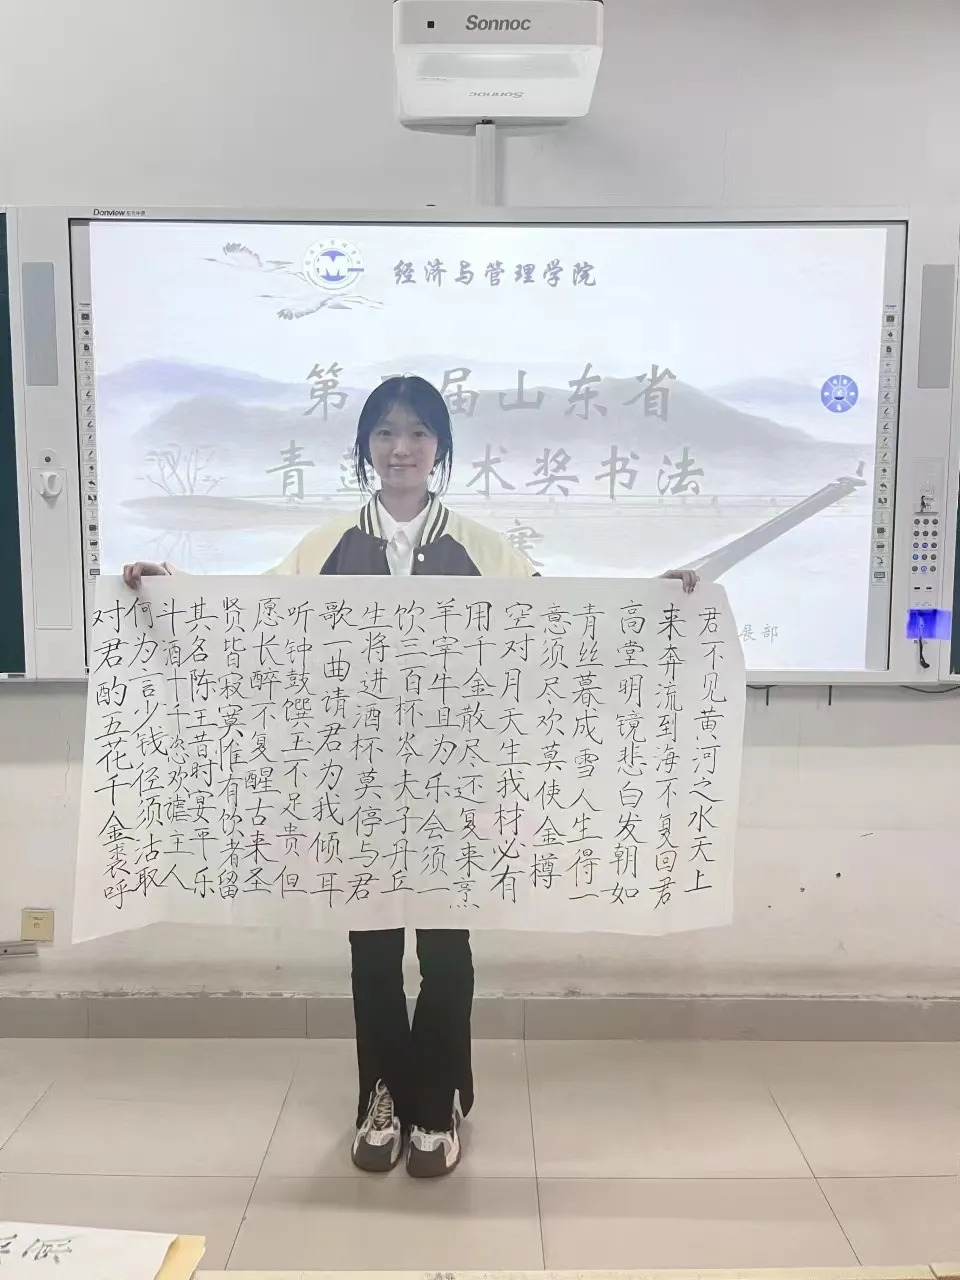 Sonnoc
Donview
经济与管理学院
第 届山东省
青莲 术奖书法
展部
君不见黄河之水天上
来奔流到海不复回君
高堂明镜悲白发朝如
青丝暮成雪人生得一
意须尽欢莫使金樽
空对月天生我材必有
用千金散尽还复来烹
羊宰牛且为乐会须一
饮三百杯岑夫子丹丘
生将进酒杯莫停与君
歌一曲请君为我倾耳
听钟鼓馔玉不足贵但
愿长醉不复醒古来圣
贤皆寂寞惟有饮者留
其名陈王昔时宴平乐
斗酒十千恣欢谑主人
何为言少钱径须沽取
对君酌五花千金裘呼